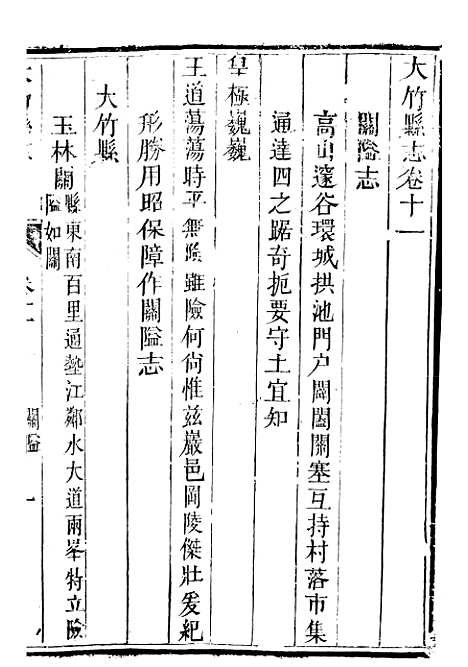 大竹縣志卷十一
關隘志
高山邃谷環城拱池門户闢闔關塞互持村落市集
通達四之踞奇扼要守土宜知
皇極巍巍
王道蕩蕩時平無險雖險何尚惟兹巖邑岡陵傑壯爰紀
形勝用昭保障作關隘志
大竹縣
玉林關縣東南百里通墊江鄰水大道兩峯特立險
隘如關
卷十一 關隘 一